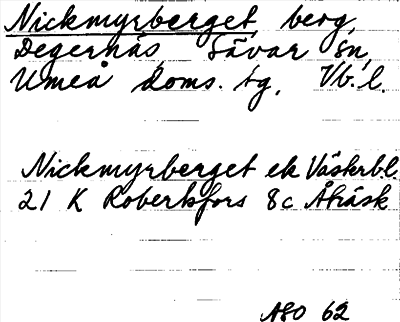 Nickmyrberget, berg,
Degernäs, Sävar sn,
Umeå doms. tg, Vb. l.
Nickmyrberget ek Västerbl.
21 K Robertsfors 8c Åträsk
ASO 62